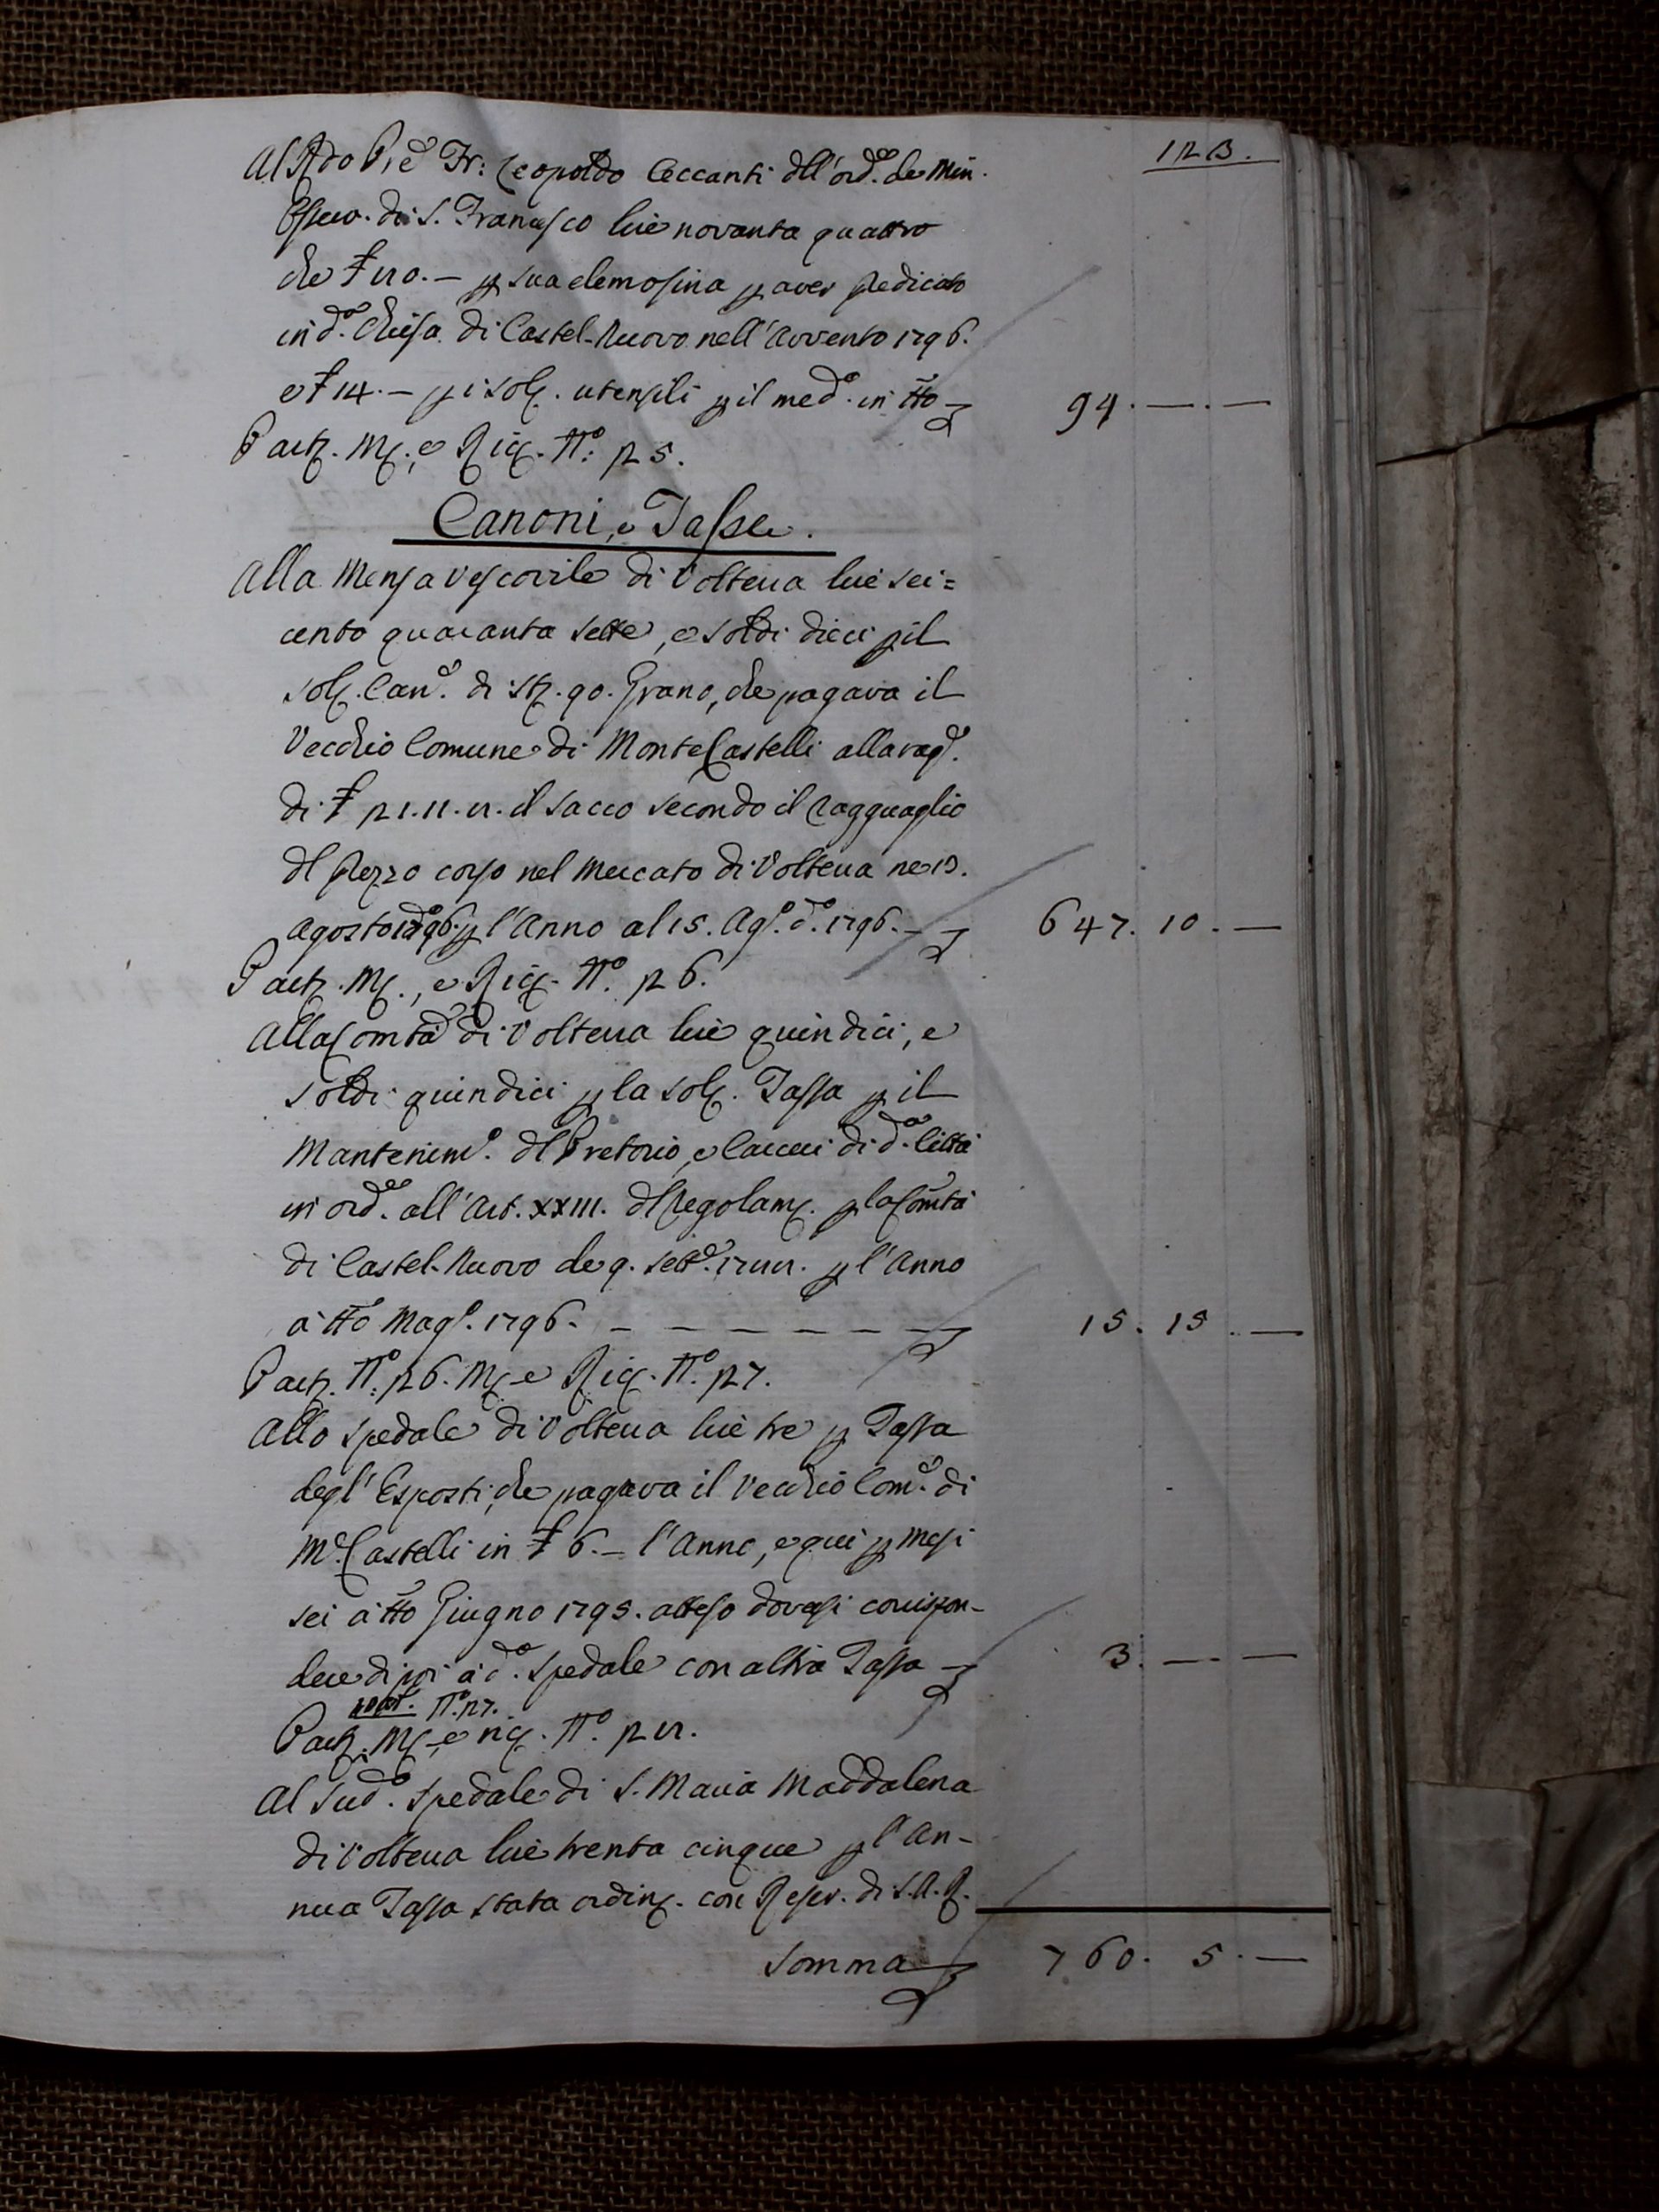 123.
Al Rdo Pre Fr: Leopoldo Ceccanti dell'ord.e de Min.
Osserv. di S. Francesco lire novanta quattro
che ₤ 80.— p sua elemosina p aver predicato
in d.a Chiesa di Castel-Nuovo nell'Avvento 1796.
e ₤ 14.— p i sol. utensili p il med.o in tto 94.—.—
Part. M., e Ric. N.o 25.
Canoni, e Tasse.
Alla Mensa Vescovile di Volterra lire sei=
cento quaranta sette, e soldi dieci p il
sol. Can.e di st. 90. Grano, che pagava il
Vecchio Comune di MonteCastelli alla rag.e
di ₤ 21.11.8. il sacco secondo il ragguaglio
del prezzo corso nel Mercato di Volterra ne 13.
Agosto 1796. p l'Anno al 15. Ag.o d.o 1796.— 647.10.—
Part. M., e Ric. N.o 26.
Alla Comtà di Volterra lire quindici, e
soldi quindici p la sol. Tassa p il
Mantenim.o del Pretorio, e Carceri di d.a Città
in ord.e all'Art. XXIII. del Regolam. p la Comtà
di Castel-Nuovo de 9. Sett.e 1788. p l'Anno
a tto Mag.o 1796. — — — — — — 15.15.—
Part. N.o 26. M. e Ric. N.o 27.
Allo Spedale di Volterra lire tre p Tassa
degl'Esposti, che pagava il Vecchio Com.e di
M.e Castelli in ₤ 6.— l'Anno, e qui p mesi
sei a tto Giugno 1795. atteso doversi corrispon-
dere di poi a d.o Spedale con altra Tassa 3.—.—
N.o 27.
Part. M. e ric. N.o 28.
Al sud.o Spedale di S. Maria Maddalena
di Volterra lire trenta cinque p l'An-
nua Tassa stata ordin. con Rescr. di S.A.R.
Somma 760. 5.—